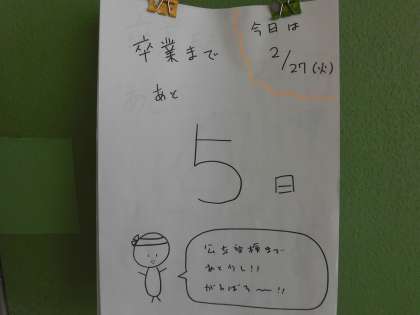 今日は
2/27(火)
卒業まで
あと
5日
公立受検まで
あと少し!!
がんばろ〜!!